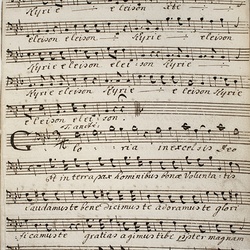 eleison Xte
eleison Kyrie eleison Kyrie
Kyrie eleison eleison Kyrie
eleison Kyrie eleison Kyrie
eleison eleison.
Gloria in excelsis Deo
et in terra pax hominibus bonae Voluntatis
Laudamus te benedicimus te adoramus te glori
ficamus te gratias agimus tibi propter magnam